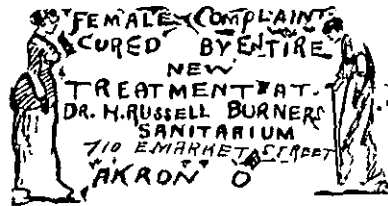 FEMALE COMPLAINT
CURED BY ENTIRE
NEW
TREATMENT AT.
DR. H. RUSSELL BURNERS
SANITARIUM
710 E MARKET STREET
AKRON O